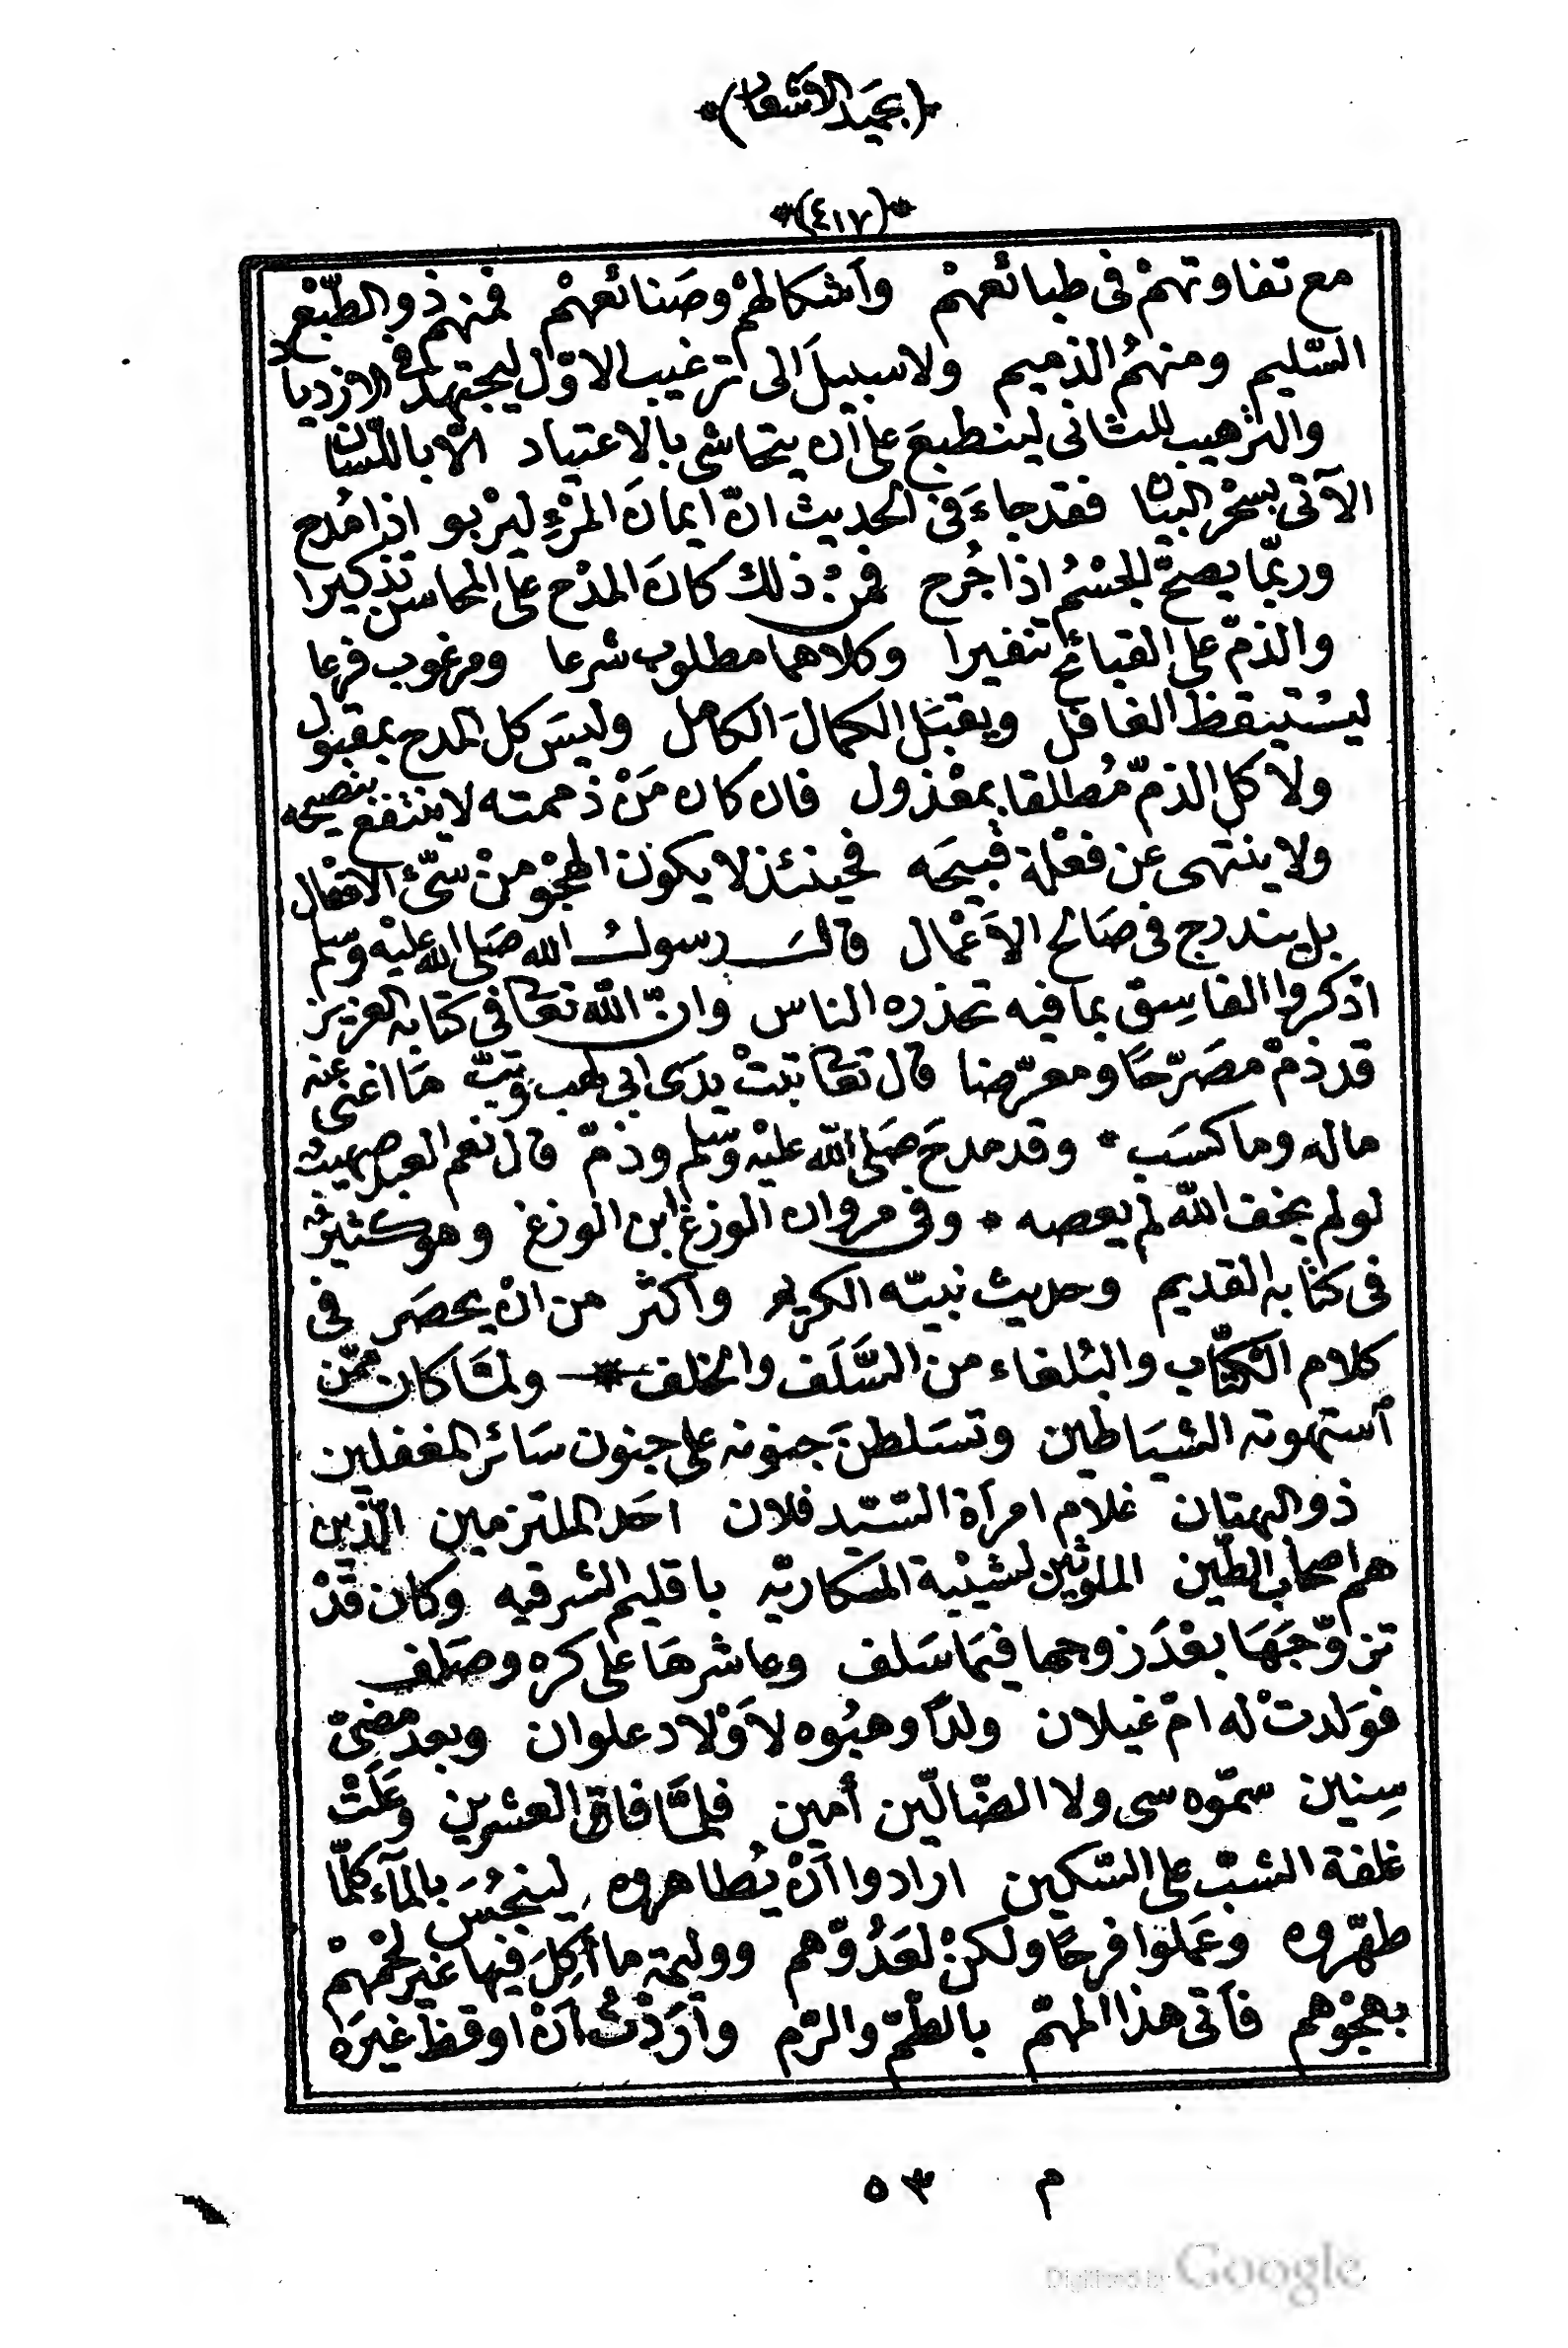 *(بحميد الاشعار)*
*(٤١٧)*
مع تفاوتهمْ فى طبائعهمْ وأشكالهمْ وصَنائعهمْ فمنهم ذو الطّبْع
السّليم ومنهمُ الذميم ولا سبيلَ الى ترغيب الاوّل ليجتهد فى الازدياد
والترهيب للثانى لينطبعَ على أن يتحاشى بالاعتياد الّا باللّسان
الآتى بسحْر البيان فقد جاءَ فى الحديث انّ ايمانَ المرْءِ ليرْبو اذا مُدح
وربّما يصحّ الجسْمُ اذا جُرح فمنْ ذلك كانَ المدْح على المحاسن تذكيرا
والذمّ على القبائح تنفيرا وكلاهما مطلوب شرعا ومرغوب فرعا
ليسْتيقظ الغافل ويقبَل الكمالَ الكامل وليسَ كل المدح بمقبول
ولا كل الذمّ مُطلقا بمعْذول فان كان مَنْ ذممته لا ينتفع بنصيحه
ولا ينتهى عن فعْلة قبيحَه فحينئذ لا يكون الهجْو منْ سىّئ الافعال
بل يندرج فى صَالح الأعْمال قالَ رسولُ الله صَلى الله عليْه وسّلم
اذكروا الفاسِق بما فيه تحذره الناس وانّ اللّه تعالى فى كتابه العزيز
قد ذمّ مصَرّحًا ومعرّضا قال تعالى تبتْ يدَى ابى لهب وتبّ مَا اغنى عنه
ماله وما كسَب * وقد مدحَ صَلى اللّه عليْه وسّلم وذمّ قال نعم العبد صهيب
لو لم يخف اللّه لم يعصه * وفى مروان الوزغ ابن الوزغ وهو كثير
فى كتابه القديم وحديث نبيّه الكريم وأكثر من انْ يحصَر فى
كلام الكتّاب والبُلغاء من السَّلَف والخلف * ولمّا كان ممّن
أستهوته الشيَاطين وتسَلطنَ جنونه على جنون سَائر المغفلين
ذو البهتان غلام امرأة السّيّد فلان احَد الملتزمين الّذين
هم اصحاب الطّين الملوثين لشيْبة المكاريّه باقليم الشرقيه وكان قدْ
تزوّجَهَا بعْدَ زوجها فيمَا سَلف وعاشرهَا على كره وصَلف
فوَلدتْ له امّ غيلان ولدًا وهبُوه لأوْلاد علوان وبعد مضىّ
سِنين سمّوه سى ولا الضّالّين أمين فلمَّا فاق العشرين وعَلَتْ
غلفة الشبّ على السّكين ارادوا أنْ يُطاهروه لينجُسَ بالمآء كلّما
طهّروه وعَملوا فرحًا ولكنْ لعَدُوّهم ووليمة ما أكِلَ فيها غيْر لحْمهمْ
بهجْوهم فأتى هذا المهمّ بالطّمّ والرّم وأرَدْتُ أنْ اوقظ غيرَه
م ٥٣
Digitized by Google